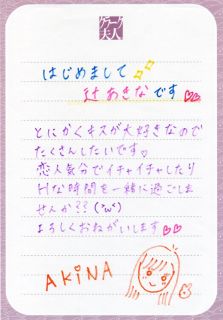 クラーク
夫人
はじめまして
辻 あきな です
とにかくキスが大好きなので
たくさんしたいです♡
恋人気分でイチャイチャしたり
Hな時間を一緒に過ごしま
せんか?? (*'ω'*)
よろしくおねがいします♡♡
AKiNA